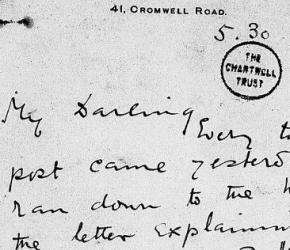 41, CROMWELL ROAD.
5.30
THE
CHARTWELL
TRUST
My Darling
Every t
post came yesterd
ran down to the h
the letter explainin